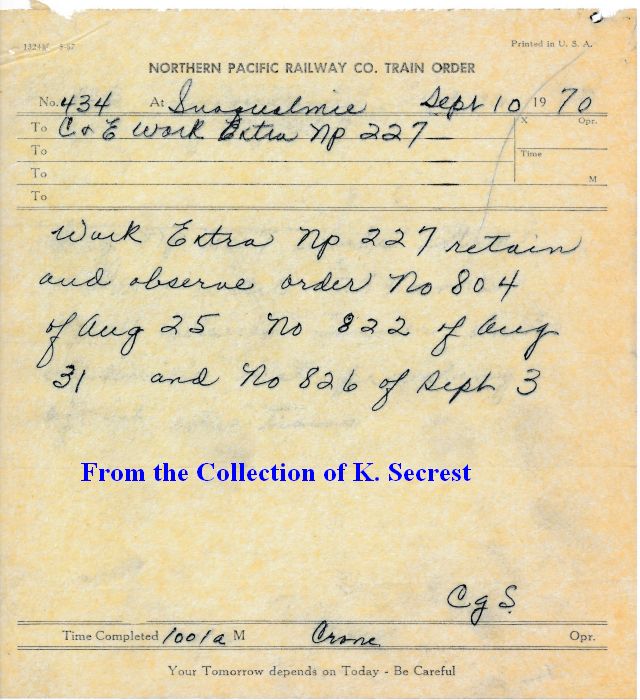 1328½ 5-67 Printed in U. S. A.
NORTHERN PACIFIC RAILWAY CO. TRAIN ORDER
No. 434 At Snoqualmie Sept 10 19 70
To C & E Work Extra Np 227 X Opr.
To Time
To M
To
Work Extra Np 227 retain
and observe order No 804
of Aug 25 No 822 of Aug
31 and No 826 of Sept 3
From the Collection of K. Secrest
CgS
Time Completed 1001a M Crone Opr.
Your Tomorrow depends on Today - Be Careful